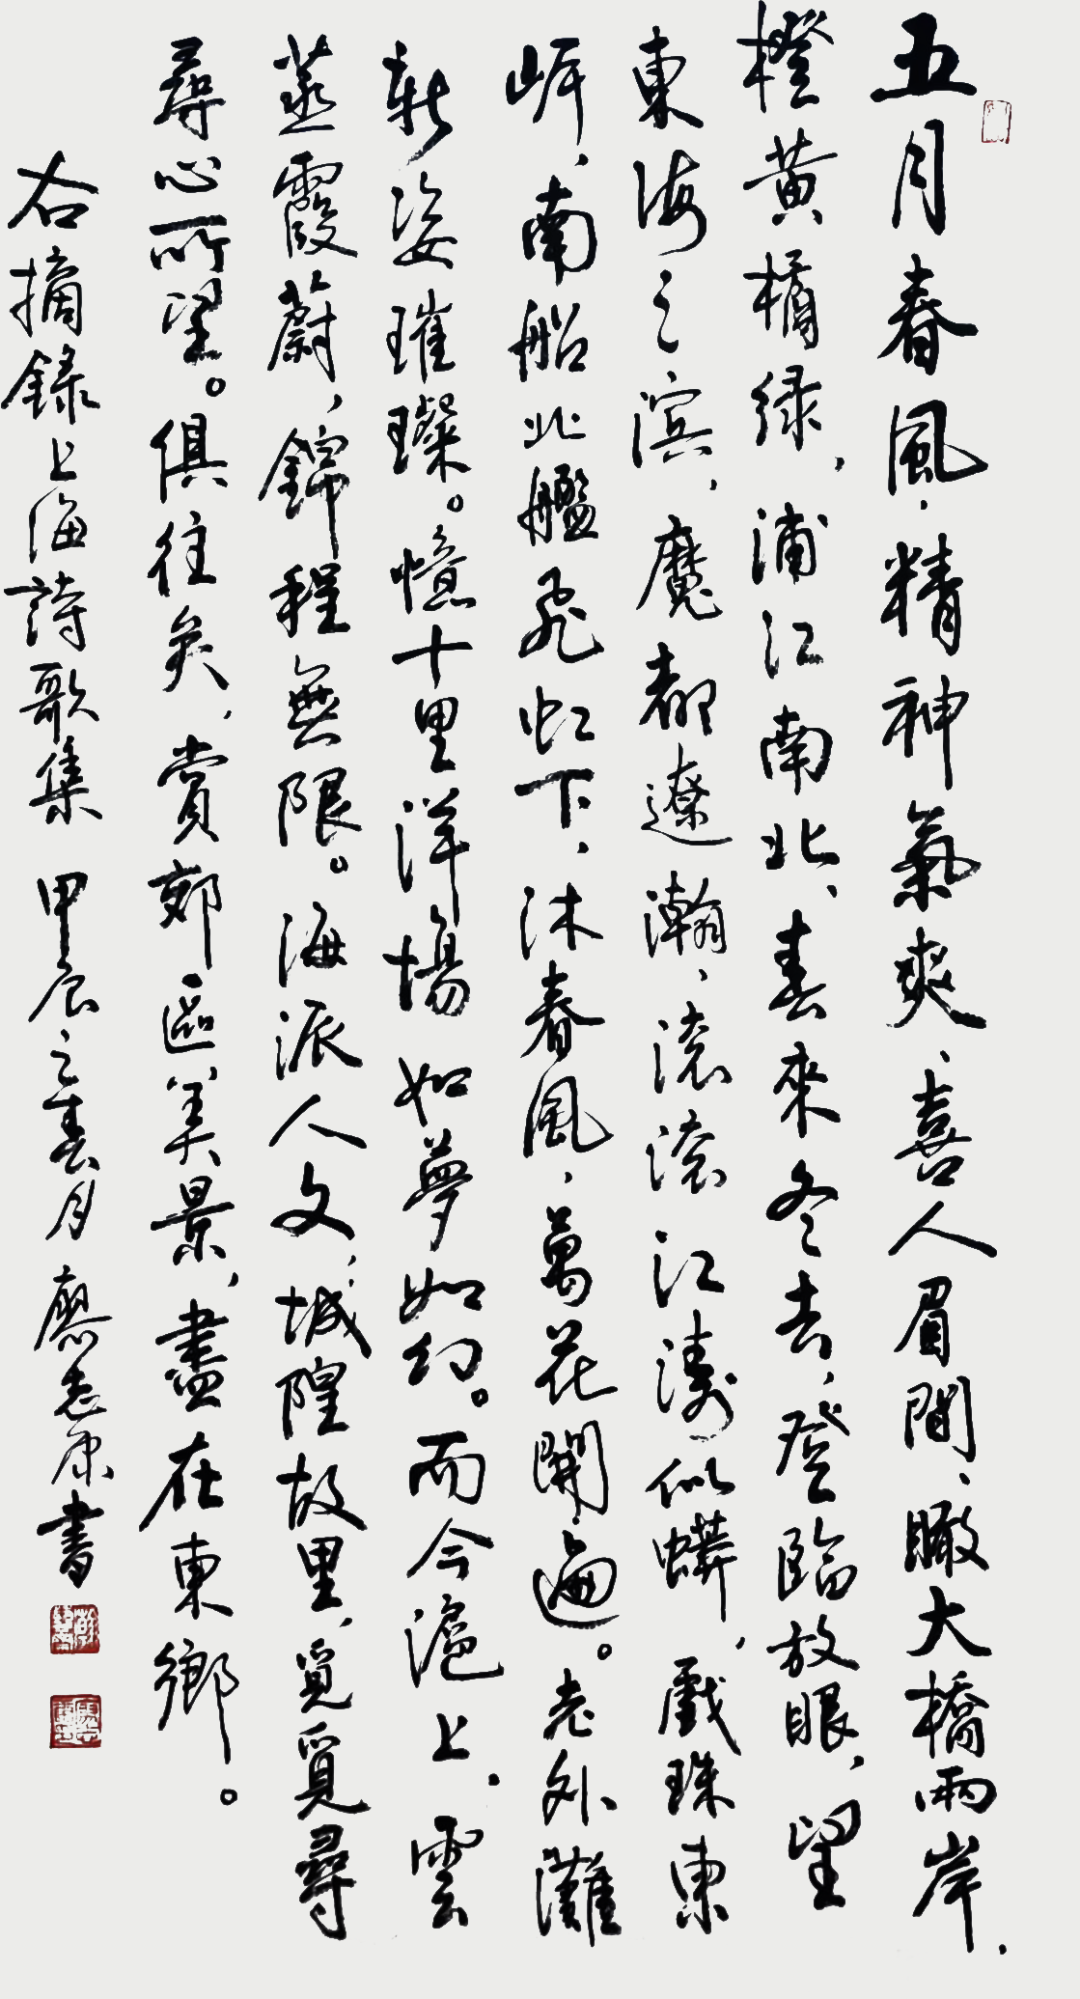 五月春風，精神氣爽、喜人眉間、瞰大橋兩岸，
橙黄橘绿，浦江南北、春來冬去，登臨放眼，望
東海之滨，魔都遼瀚，滚滚江濤似蟒，戲珠東
岸、南船北艦飛虹下，沐春風，萬花開遍。老外灘
新姿璀璨。憶十里洋場如夢如幻。而今滬上，雲
蒸霞蔚，錦程無限。海派人文，城隍故里，覓覓尋
尋心所望。俱往矣，賞郊區美景，盡在東鄉。
右摘録上海詩歌集 甲辰之春月 廖志康書